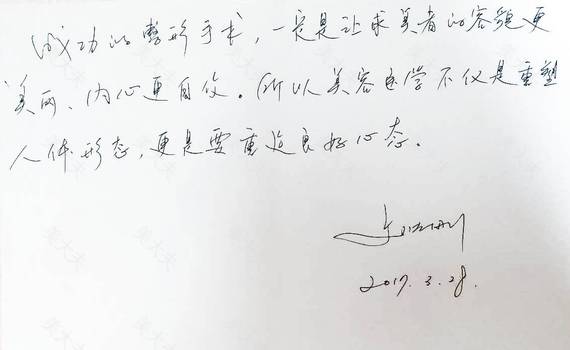 成功的整形手术，一定是让求美者的容貌更
美丽、内心更自信。所以美容医学不仅是重塑
人体形态，更是要重造良好心态。
2017.3.28.